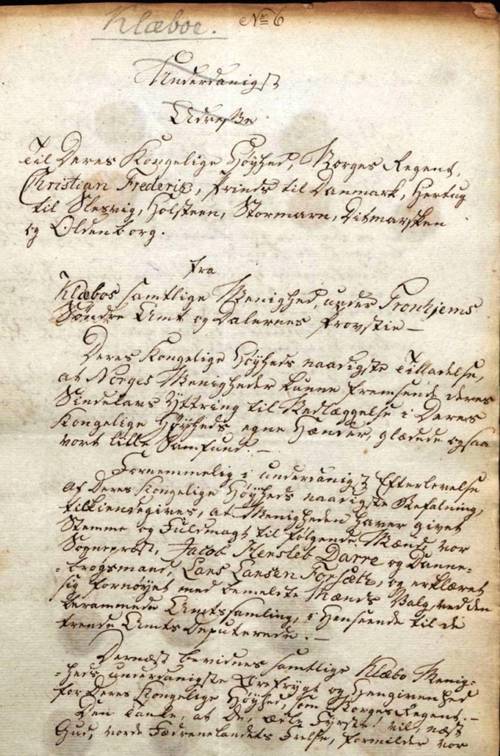 Klæboe. No 6
Underdanigst
Adresse
Til Deres Kongelige Høyhed, Norges Regent,
Christian Frederik, Prinds til Danmark, Hertug
til Slesvig, Holsteen, Stormarn, Ditmarsken
og Oldenborg.
fra
Klæboe samtlige Menighed, under Tronhjems
Søndre Amt og Dalernes Provstie—
Deres Kongelige Høyheds naadigste Tilladelse,
at Norges Menigheder kunne fremsende deres
Sindelavs Yttring til Nedlæggelse i Deres
Kongelige Høyheds egne Hænder, glædede ogsaa
vort lille Samfund.—
Fornemmelig i underdanigst Efterlevelse
af Deres Kongelige Høyheds naadigste Befaling,
tilkiendegives, at Menigheden haver givet
Stemme og Fuldmagt til følgende Mænd, vor
Sognepræst, Jacob Hersleb Darre og Danne-
brogsmand, Lars Larsen Forsæth, og erklæret
sig fornøyet med bemeldte Mænds Valg ved den
berammede Amtssamling, i Henseende til de
trende Amts Deputerede.—
Dernæst bevidnes samtlige Klæbo Menig-
heds underdanigste Ærefrygt og Hengivenhed
for Deres Kongelige Høyhed, som Norges Regent.—
Den Tanke, at De, ædle Fyrste! vil, næst
Gud, vorde Fædrenelandets Frelse, formilder vor